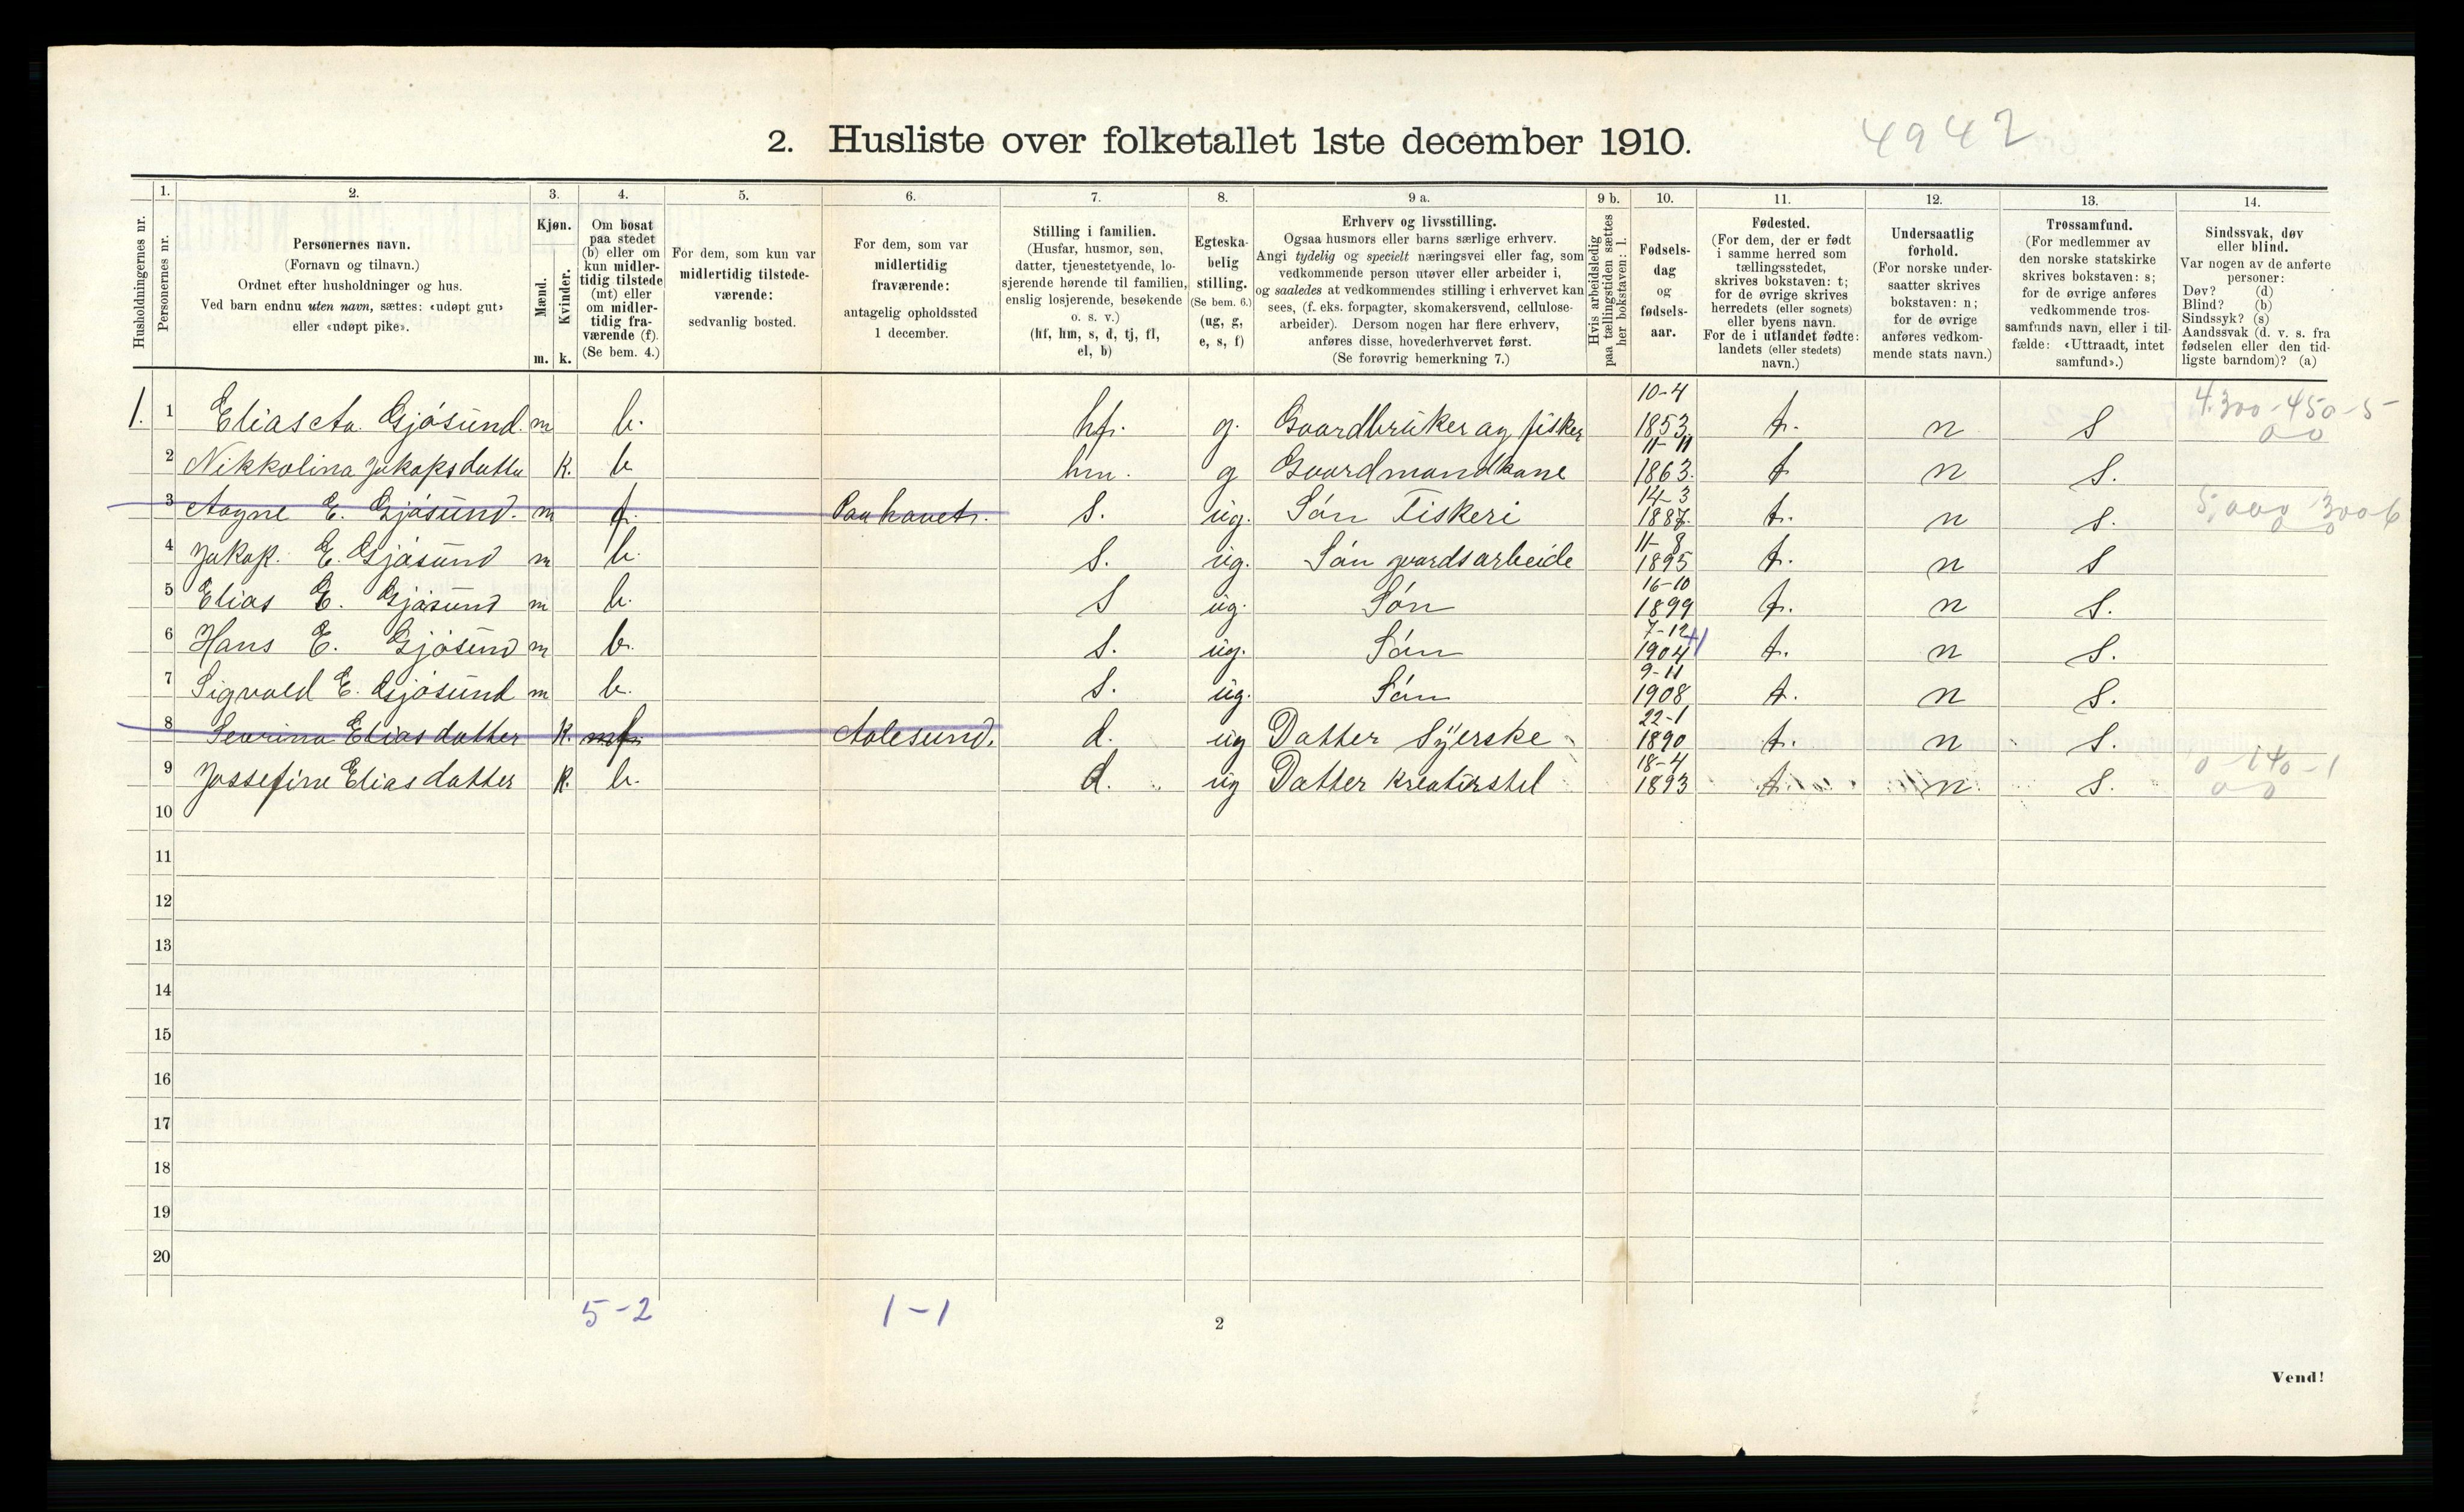 2. Husliste over folketallet 1ste december 1910. 4942
Husholdningernes nr.
1. Personernes nr.
2. Personernes navn.
(Fornavn og tilnavn.)
Ordnet efter husholdninger og hus.
Ved barn endnu uten navn, sættes: «udøpt gut»
eller «udøpt pike».
3. Kjøn.
Mænd. Kvinder.
m. k.
4. Om bosat
paa stedet
(b) eller om
kun midler-
tidig tilstede
(mt) eller
om midler-
tidig fra-
værende (f).
(Se bem. 4.)
5. For dem, som kun var
midlertidig tilstede-
værende:
sedvanlig bosted.
6. For dem, som var
midlertidig
fraværende:
antagelig opholdssted
1 december.
7. Stilling i familien.
(Husfar, husmor, søn,
datter, tjenestetyende, lo-
sjerende hørende til familien,
enslig losjerende, besøkende
o. s. v.)
(hf, hm, s, d, tj, fl,
el, b)
8. Egteska-
belig
stilling.
(Se bem. 6.)
(ug, g,
e, s, f)
9 a. Erhverv og livsstilling.
Ogsaa husmors eller barns særlige erhverv.
Angi tydelig og specielt næringsvei eller fag, som
vedkommende person utøver eller arbeider i,
og saaledes at vedkommendes stilling i erhvervet kan
sees, (f. eks. forpagter, skomakersvend, cellulose-
arbeider). Dersom nogen har flere erhverv,
anføres disse, hovederhvervet først.
(Se forøvrig bemerkning 7.)
9 b. Hvis arbeidsledig
paa tællingstiden sættes
her bokstaven: l.
10. Fødsels-
dag
og
fødsels-
aar.
11. Fødested.
(For dem, der er født
i samme herred som
tællingsstedet,
skrives bokstaven: t;
for de øvrige skrives
herredets (eller sognets)
eller byens navn.
For de i utlandet fødte:
landets (eller stedets)
navn.)
12. Undersaatlig
forhold.
(For norske under-
saatter skrives
bokstaven: n;
for de øvrige
anføres vedkom-
mende stats navn.)
13. Trossamfund.
(For medlemmer av
den norske statskirke
skrives bokstaven: s;
for de øvrige anføres
vedkommende tros-
samfunds navn, eller i til-
fælde: «Uttraadt, intet
samfund».)
14. Sindssvak, døv
eller blind.
Var nogen av de anførte
personer:
Døv? (d)
Blind? (b)
Sindssyk? (s)
Aandssvak (d. v. s. fra
fødselen eller den tid-
ligste barndom)? (a)
1. 1 Elias A. Gjøsund. m b. hf. g. Gaardbruker og fisker 10-4 1853. t. n S 4.300-450-5 00
2 Nikkolina Jakopsdatter K. b hm. g Gaardmandkone 11-11 1863. t n S.
3 Aagne E. Gjøsund. m f. Paa havet. S. ug. Søn Fiskeri 14-3 1887. t. n S. 5,000 300 6 0 0
4 Jakop. E. Gjøsund m b. S. ug. Søn gaardsarbeide 11-8 1895 t. n S
5 Elias E. Gjøsund m b. S ug. Søn 16-10 1899 t. n S.
6 Hans E. Gjøsund m b. S. ug. Søn 7-12 1904 t. n S.
7 Sigvald E. Gjøsund m b. S. ug. Søn 9-11 1908 t. n S.
8 Sevrina Eliasdatter K. mf. Aalesund. d. ug Datter Syerske 22-1 1890 t. n S.
9 Jossefine Eliasdatter K. b. d. ug Datter kreaturstel 18-4 1893 t. n S. 0-140-1 0 0
10
11
12
13
14
15
16
17
18
19
20
5-2 1-1
2
Vend!